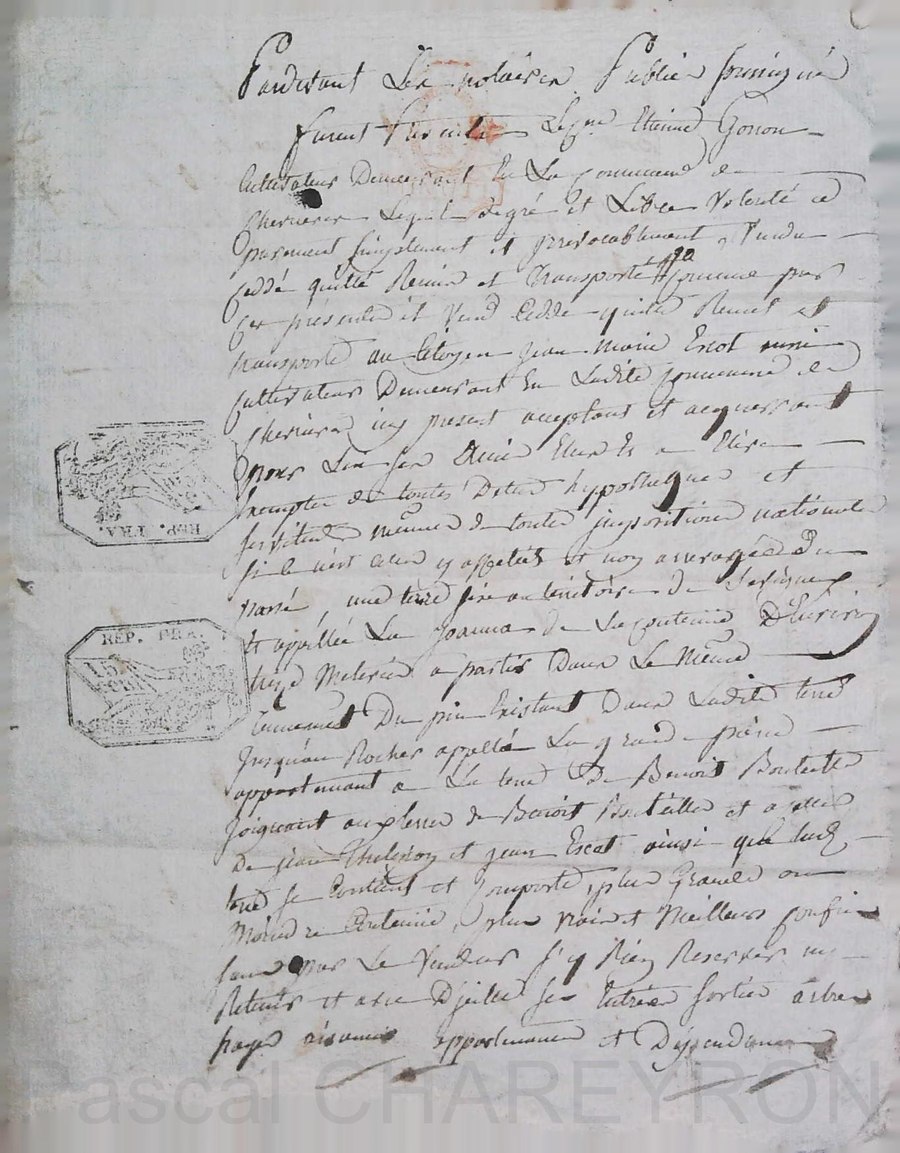 Pardevant Les notaires Public soussigné
furent présents Le Cn. Etienne Gonon
Cultivateur Demeurant En La commune de
Cherier Lequel de gré et Libre Volonté a
purement simplement et irrevocablement Vendu
Ceddé quitté Remis et Transporté Comme par
Ces présentes il Vend Cedde quitte Remet et
transporte au Citoyen Jean Marie Escot aussi
Cultivateur Demeurant En Ladite commune de
Cherier icy present acceptant et acquerrant
pour Lui ses amis Elus et a Elire
Exempte de toutes Dettes hypotheque et
servitude même de toutes imposition nationale
si ce n'est celles y affectés et non arreragée du
passé, une terre sise au territoire de
et appellée La de La contenue D'Environ
treize Meterée a partir Dans Le Même
Du pin Existant Dans Ladite terre
Jusqu'au Rocher appellé La grande pierre
appartenant a La terre De Benoit Bouteille
Joignant de Benoit Bouteille et a celle
De Jean et Jean Escot ainsi que lad.
terre se Contient et Comporte, plus Grande ou
Moindre Contenue, plus vrais et Meilleurs confins
sauf par Le Vendeur s'y Rien Reserver ny
Retenir et avec D'icelle ses Entrées sorties arbres
passages aisances appartenances et Dépendances
REP. FRA.
REP. FRA.
Pascal CHAREYRON